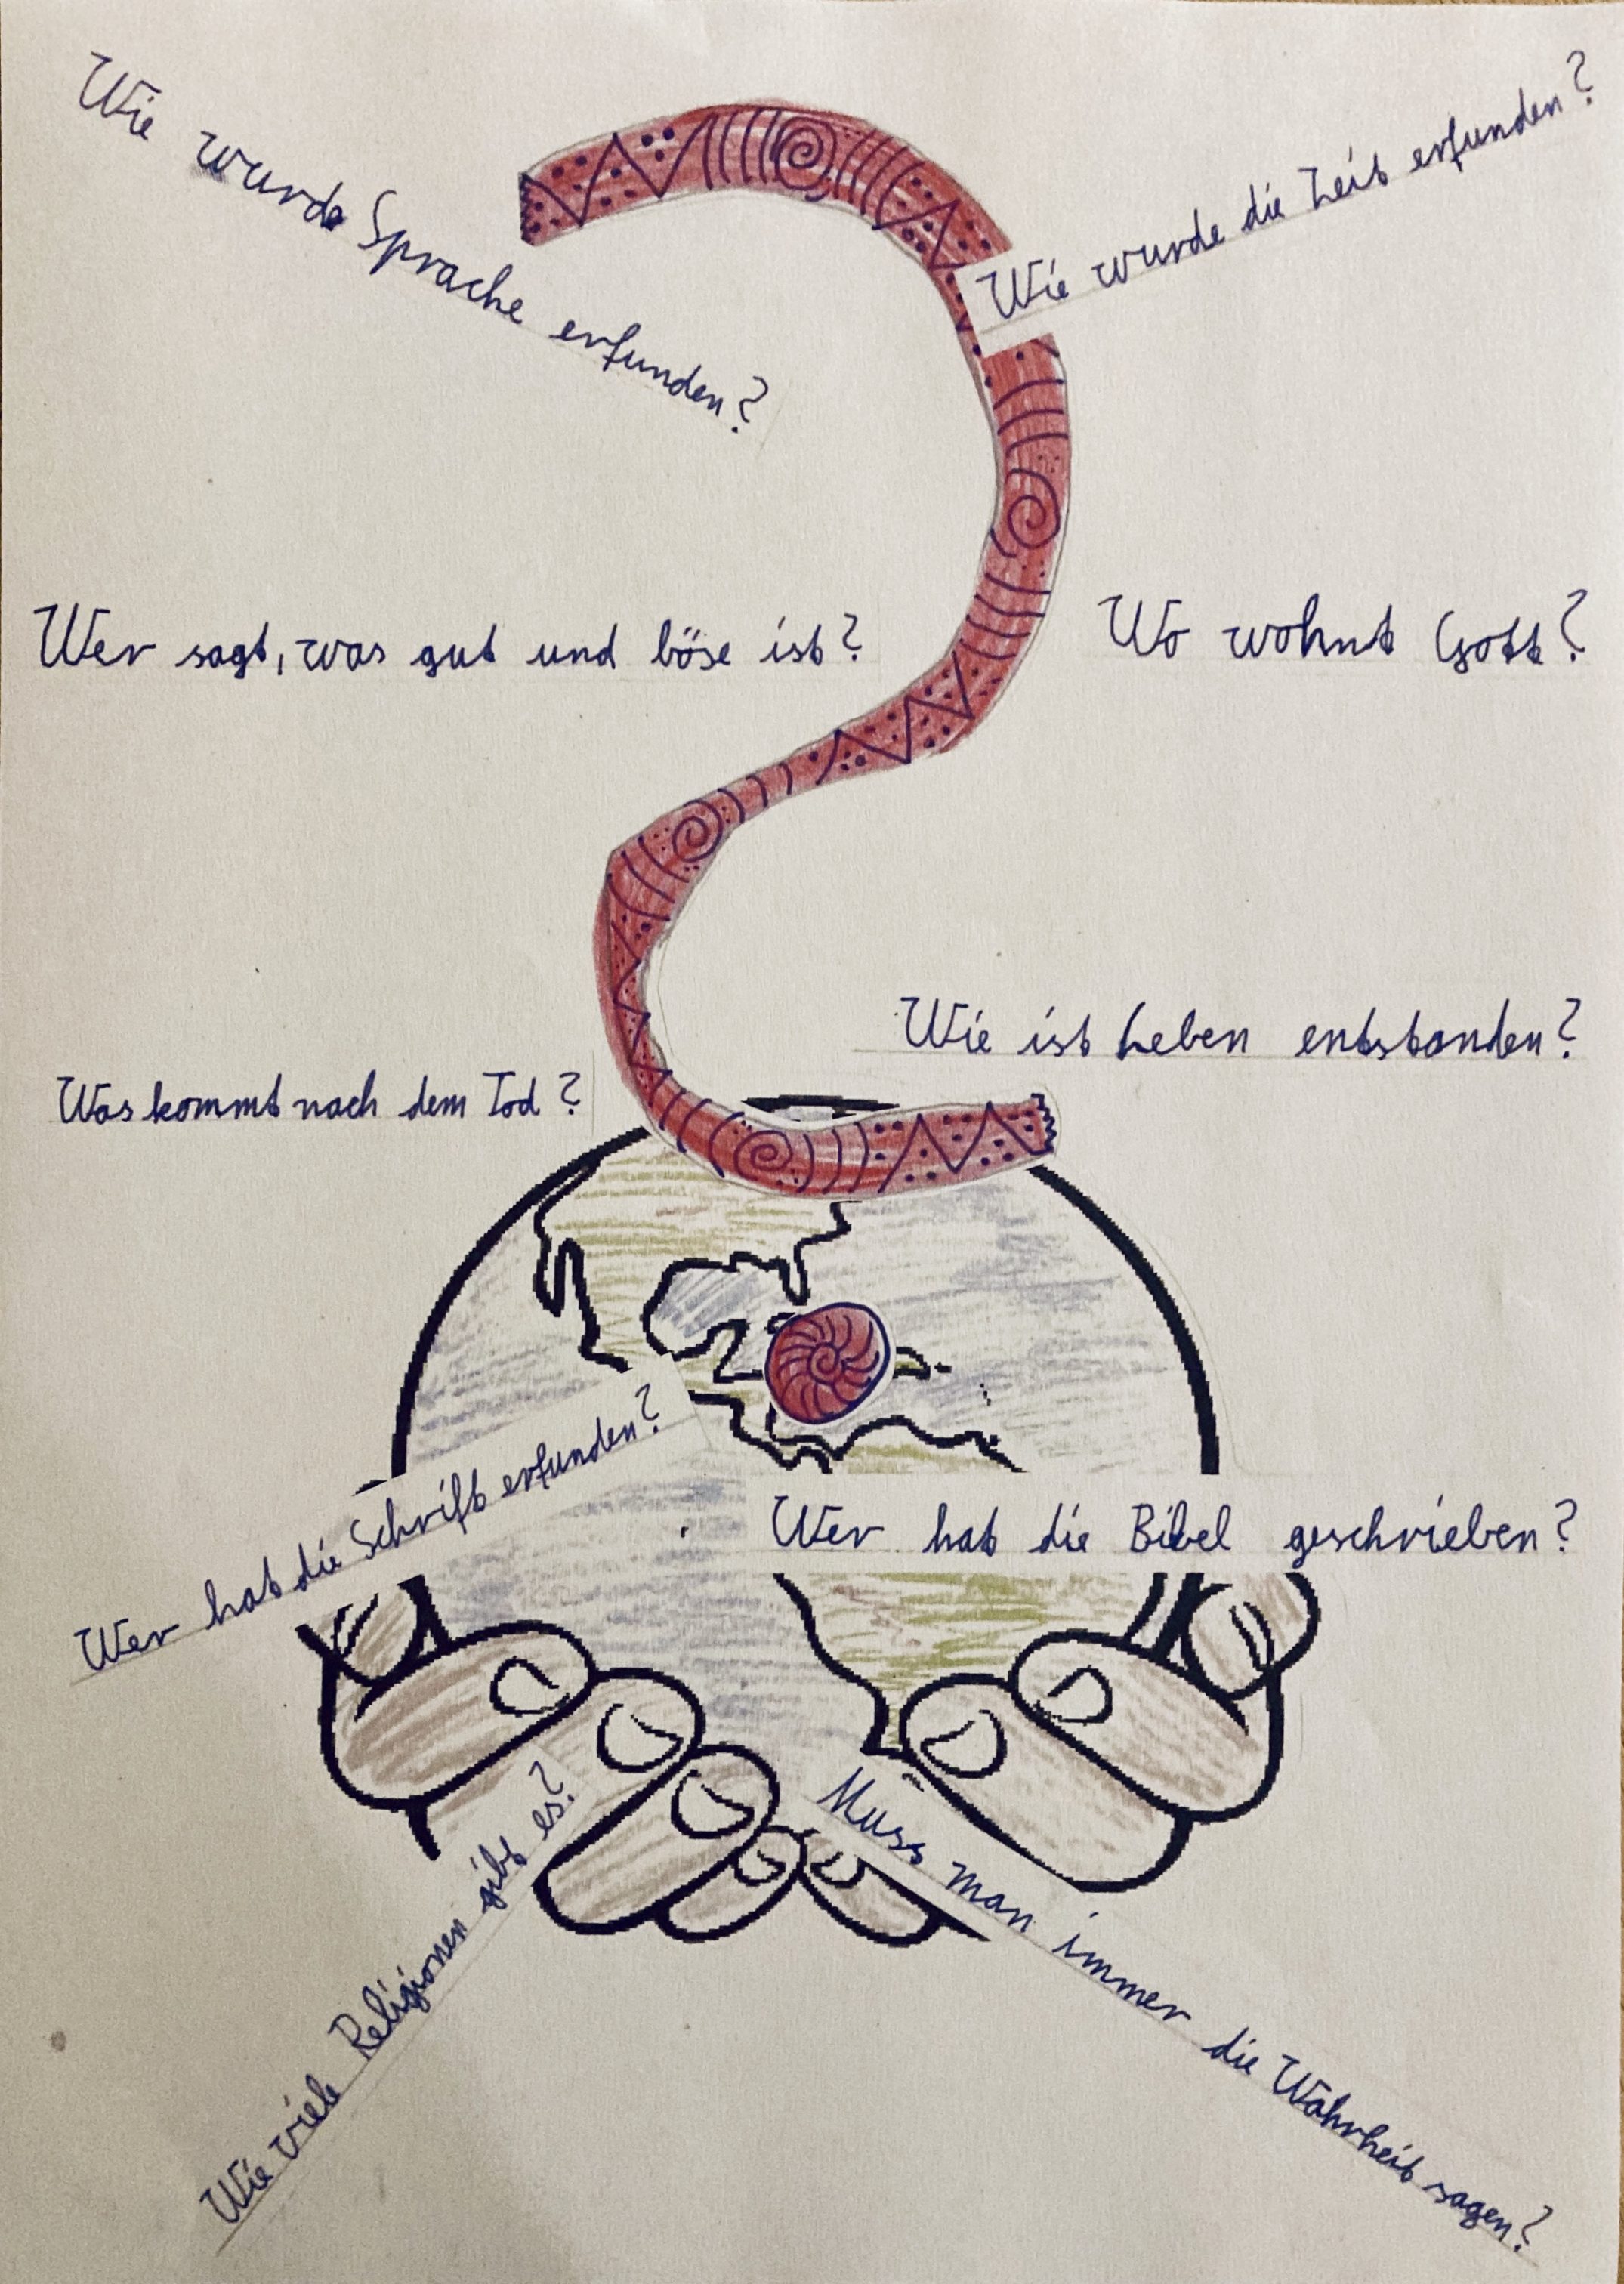 Wie wurde Sprache erfunden?
Wie wurde die Zeit erfunden?
Wer sagt, was gut und böse ist?
Wo wohnt Gott?
Wie ist Leben entstanden?
Was kommt nach dem Tod?
Wer hat die Schrift erfunden?
Wer hat die Bibel geschrieben?
Wie viele Religionen gibt es?
Muss man immer die Wahrheit sagen?